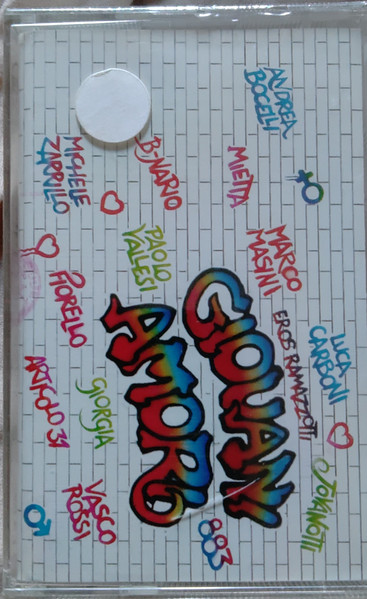 ANDREA
BOCELLI
LUCA
CARBONI
JOVANOTTI
MARCO
MASINI
EROS RAMAZZOTTI
MIETTA
GIOVANI
AMORI
883
B-NARIO
PAOLO
VALESI
GIORGIA
MICHELE
ZARRILLO
FIORELLO
VASCO
ROSSI
ARTICOLO 31